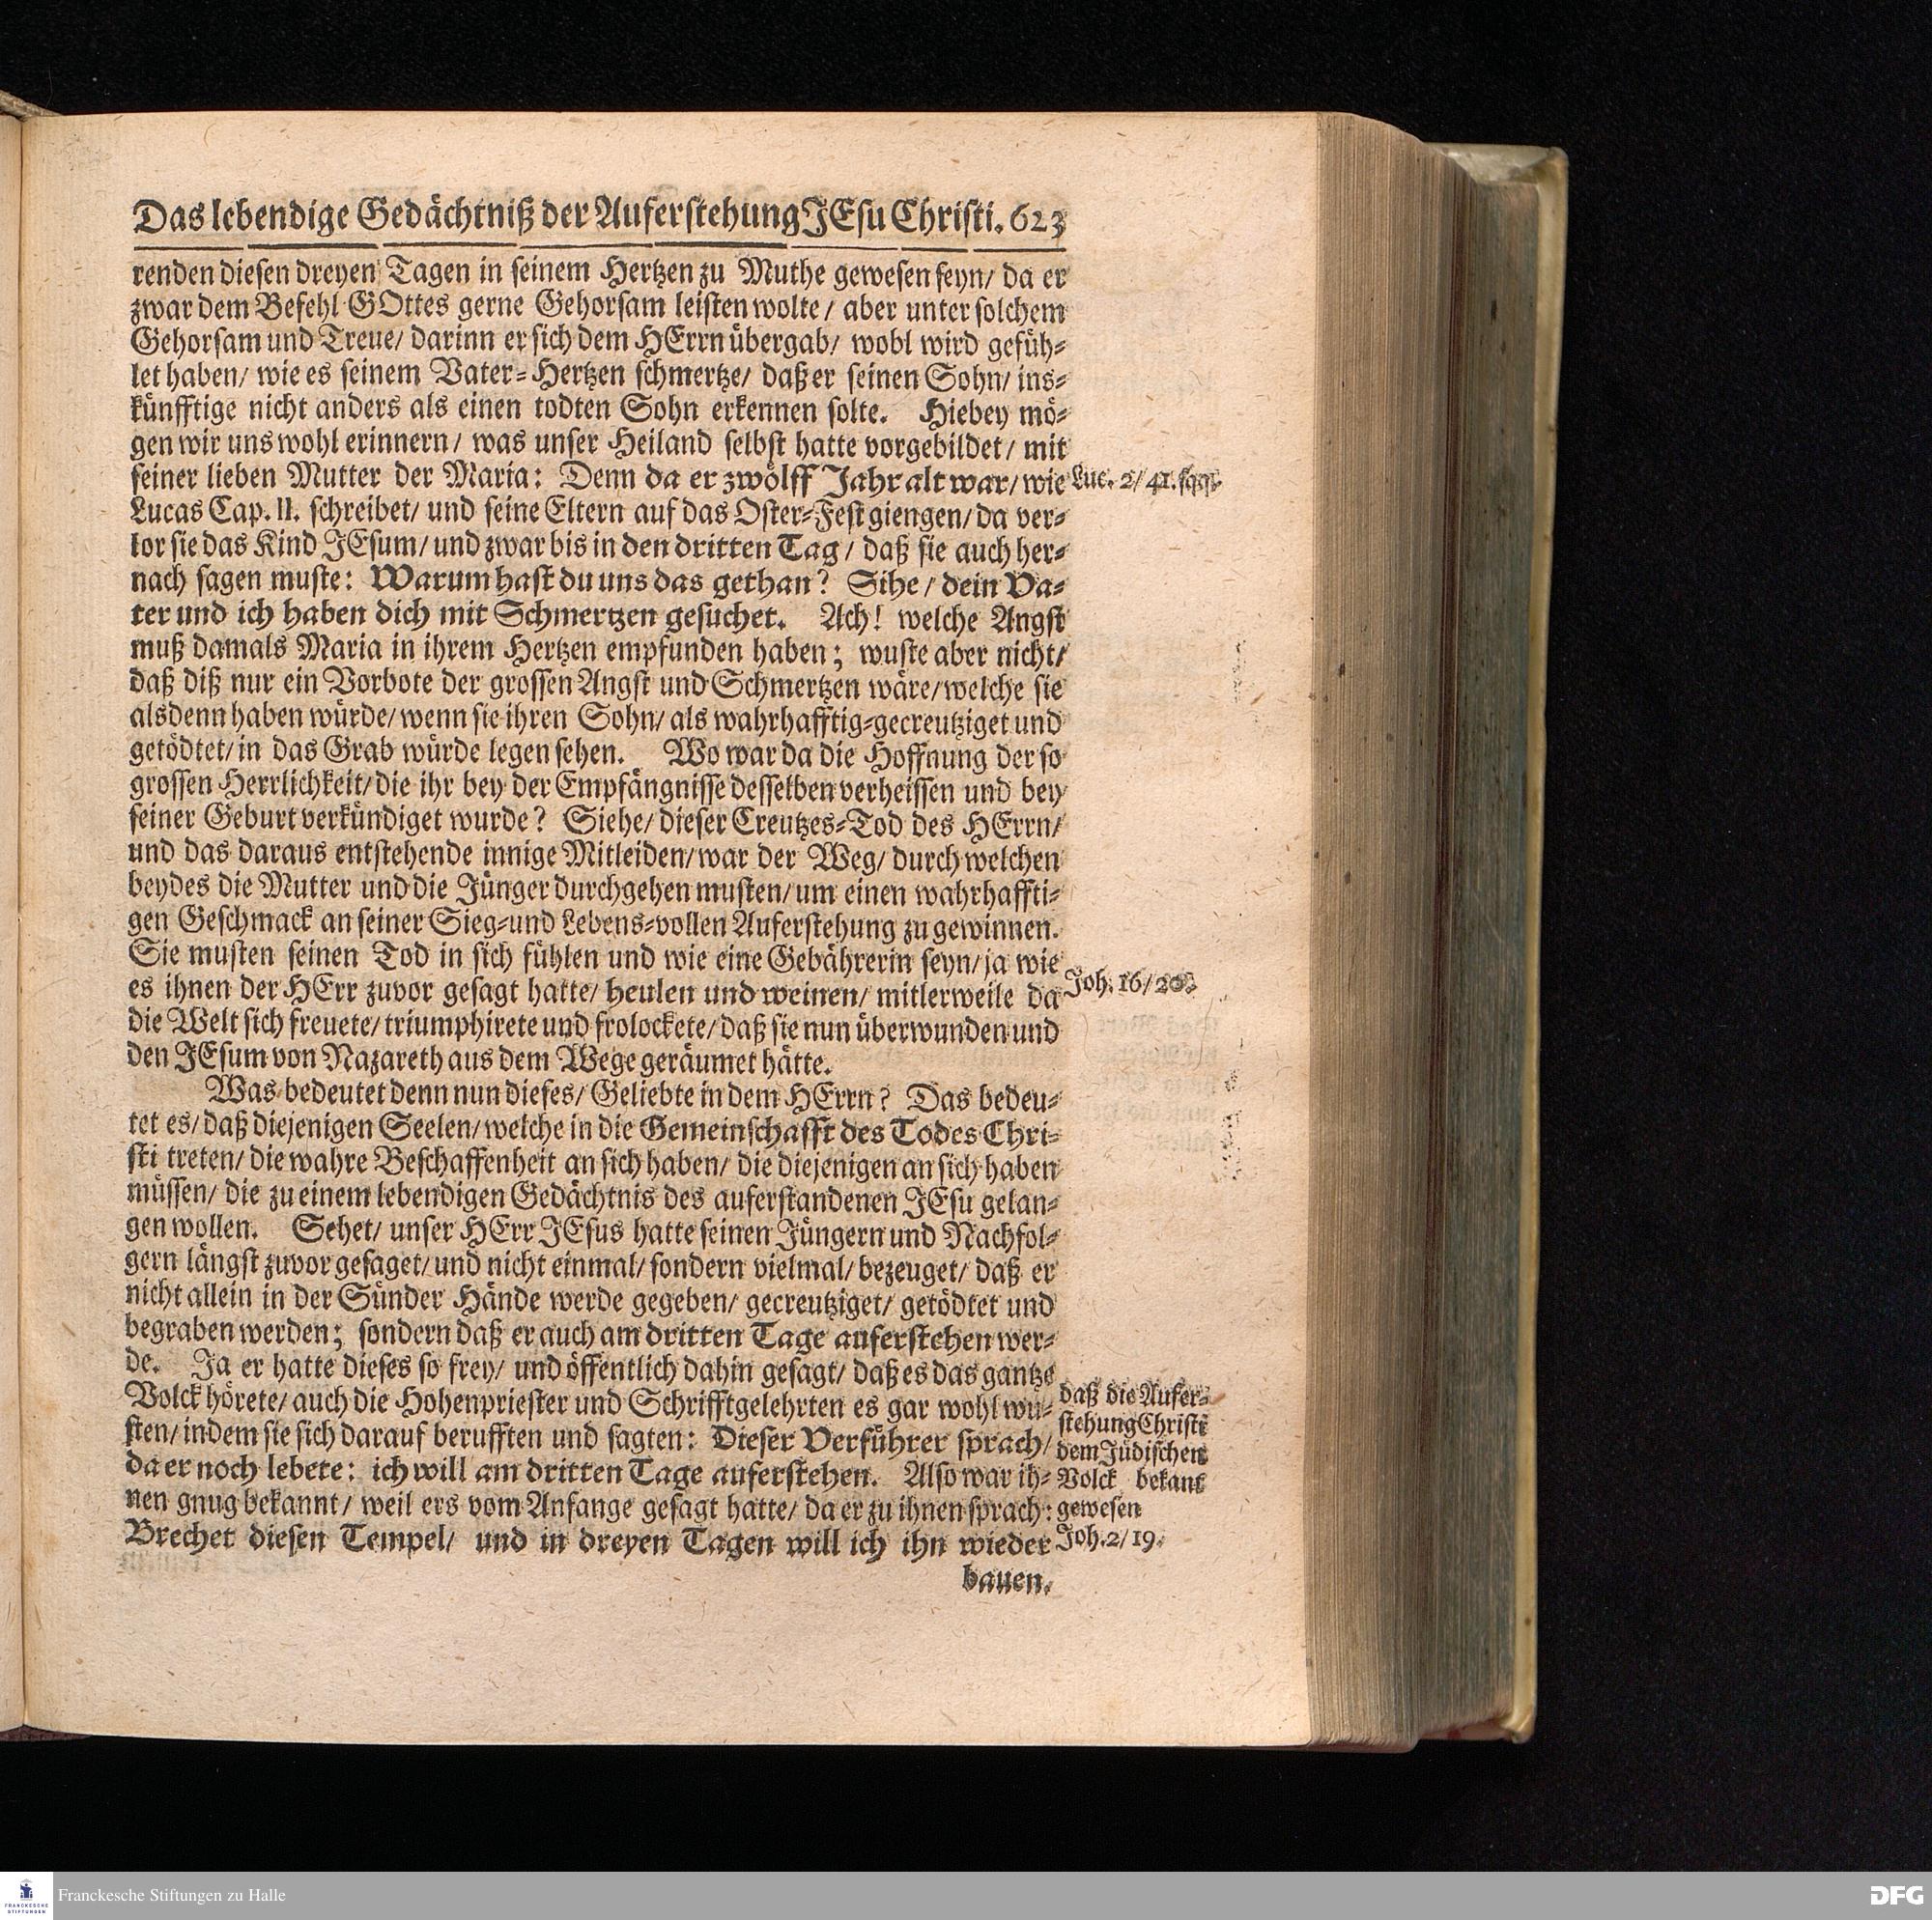 Das lebendige Gedächtniß der Auferstehung JEsu Christi. 623
renden diesen dreyen Tagen in seinem Hertzen zu Muthe gewesen seyn/ da er
zwar dem Befehl GOttes gerne Gehorsam leisten wolte/ aber unter solchem
Gehorsam und Treue/ darinn er sich dem HErrn übergab/ wohl wird gefüh-
let haben/ wie es seinem Vater-Hertzen schmertze/ daß er seinen Sohn/ ins-
künfftige nicht anders als einen todten Sohn erkennen solte. Hiebey mö-
gen wir uns wohl erinnern/ was unser Heiland selbst hatte vorgebildet/ mit
seiner lieben Mutter der Maria: Denn da er zwölff Jahr alt war/ wie
Luc. 2/ 41. sqq.
Lucas Cap. II. schreibet/ und seine Eltern auf das Oster-Fest giengen/ da ver-
lor sie das Kind JEsum/ und zwar bis in den dritten Tag/ daß sie auch her-
nach sagen muste: Warum hast du uns das gethan? Sihe/ dein Va-
ter und ich haben dich mit Schmertzen gesuchet. Ach! welche Angst
muß damals Maria in ihrem Hertzen empfunden haben; wuste aber nicht/
daß diß nur ein Vorbote der grossen Angst und Schmertzen wäre/ welche sie
alsdenn haben würde/ wenn sie ihren Sohn/ als wahrhafftig-gecreutziget und
getödtet/ in das Grab würde legen sehen. Wo war da die Hoffnung der so
grossen Herrlichkeit/ die ihr bey der Empfängnisse desselben verheissen und bey
seiner Geburt verkündiget wurde? Siehe/ dieser Creutzes-Tod des HErrn/
und das daraus entstehende innige Mitleiden/ war der Weg/ durch welchen
beydes die Mutter und die Jünger durchgehen musten/ um einen wahrhaffti-
gen Geschmack an seiner Sieg-und Lebens-vollen Auferstehung zu gewinnen.
Sie musten seinen Tod in sich fühlen und wie eine Gebährerin seyn/ ja wie
es ihnen der HErr zuvor gesagt hatte/ heulen und weinen/ mitlerweile da
Joh. 16/ 20.
die Welt sich freuete/ triumphirete und frolockete/ daß sie nun überwunden und
den JEsum von Nazareth aus dem Wege geräumet hätte.
Was bedeutet denn nun dieses/ Geliebte in dem HErrn? Das bedeu-
tet es/ daß diejenigen Seelen/ welche in die Gemeinschafft des Todes Chri-
sti treten/ die wahre Beschaffenheit an sich haben/ die diejenigen an sich haben
müssen/ die zu einem lebendigen Gedächtnis des auferstandenen JEsu gelan-
gen wollen. Sehet/ unser HErr JEsus hatte seinen Jüngern und Nachfol-
gern längst zuvor gesaget/ und nicht einmal/ sondern vielmal/ bezeuget/ daß er
nicht allein in der Sünder Hände werde gegeben/ gecreutziget/ getödtet und
begraben werden; sondern daß er auch am dritten Tage auferstehen wer-
de. Ja er hatte dieses so frey/ und öffentlich dahin gesagt/ daß es das gantze
Volck hörete/ auch die Hohenpriester und Schrifftgelehrten es gar wohl wu-
sten/ indem sie sich darauf berufften und sagten: Dieser Verführer sprach/
da er noch lebete: ich will am dritten Tage auferstehen. Also war ih-
nen gnug bekannt/ weil ers vom Anfange gesagt hatte/ da er zu ihnen sprach:
Brechet diesen Tempel/ und in dreyen Tagen will ich ihn wieder
daß die Aufer-
stehung Christi
dem Jüdischen
Volck bekant
gewesen
Joh. 2/ 19.
bauen.
Franckesche Stiftungen zu Halle
FRANCKESCHE
STIFTUNGEN
DFG